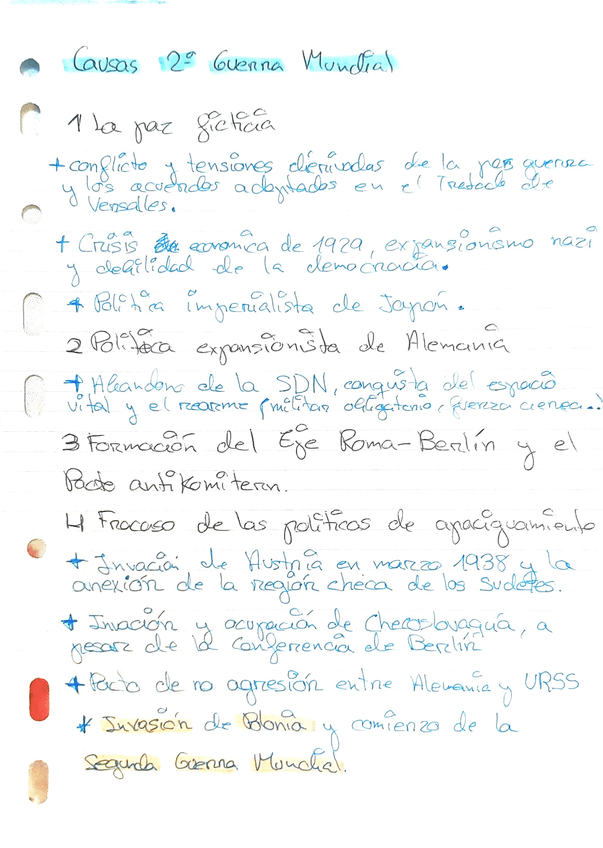 Causas 2ª Guerra Mundial
1 La paz ficticia
+ conflicto y tensiones derivadas de la guerra
y los acuerdos adoptados en el Tratado de
Versalles.
+ Crisis economica de 1929, expansionismo nazi
y debilidad de la democracia.
+ Política imperialista de Japón.
2 Política expansionista de Alemania
+ Abandono de la SDN, conqusta del espacio
vital y el rearme (militar obligatorio, fuerza aerea..)
3 Formación del Eje Roma-Berlín y el
Pacto antiKomitern.
4 Fracaso de las políticas de apaciguamiento
+ Invación de Austria en marzo 1938 y la
anexión de la región checa de los Sudetes.
+ Invación y ocupación de Checoslovaquia, a
pesar de la Conferencia de Berlín
+ Pacto de no agresión entre Alemania y URSS
+ Invasión de Polonia y comienzo de la
Segunda Guerra Mundial.